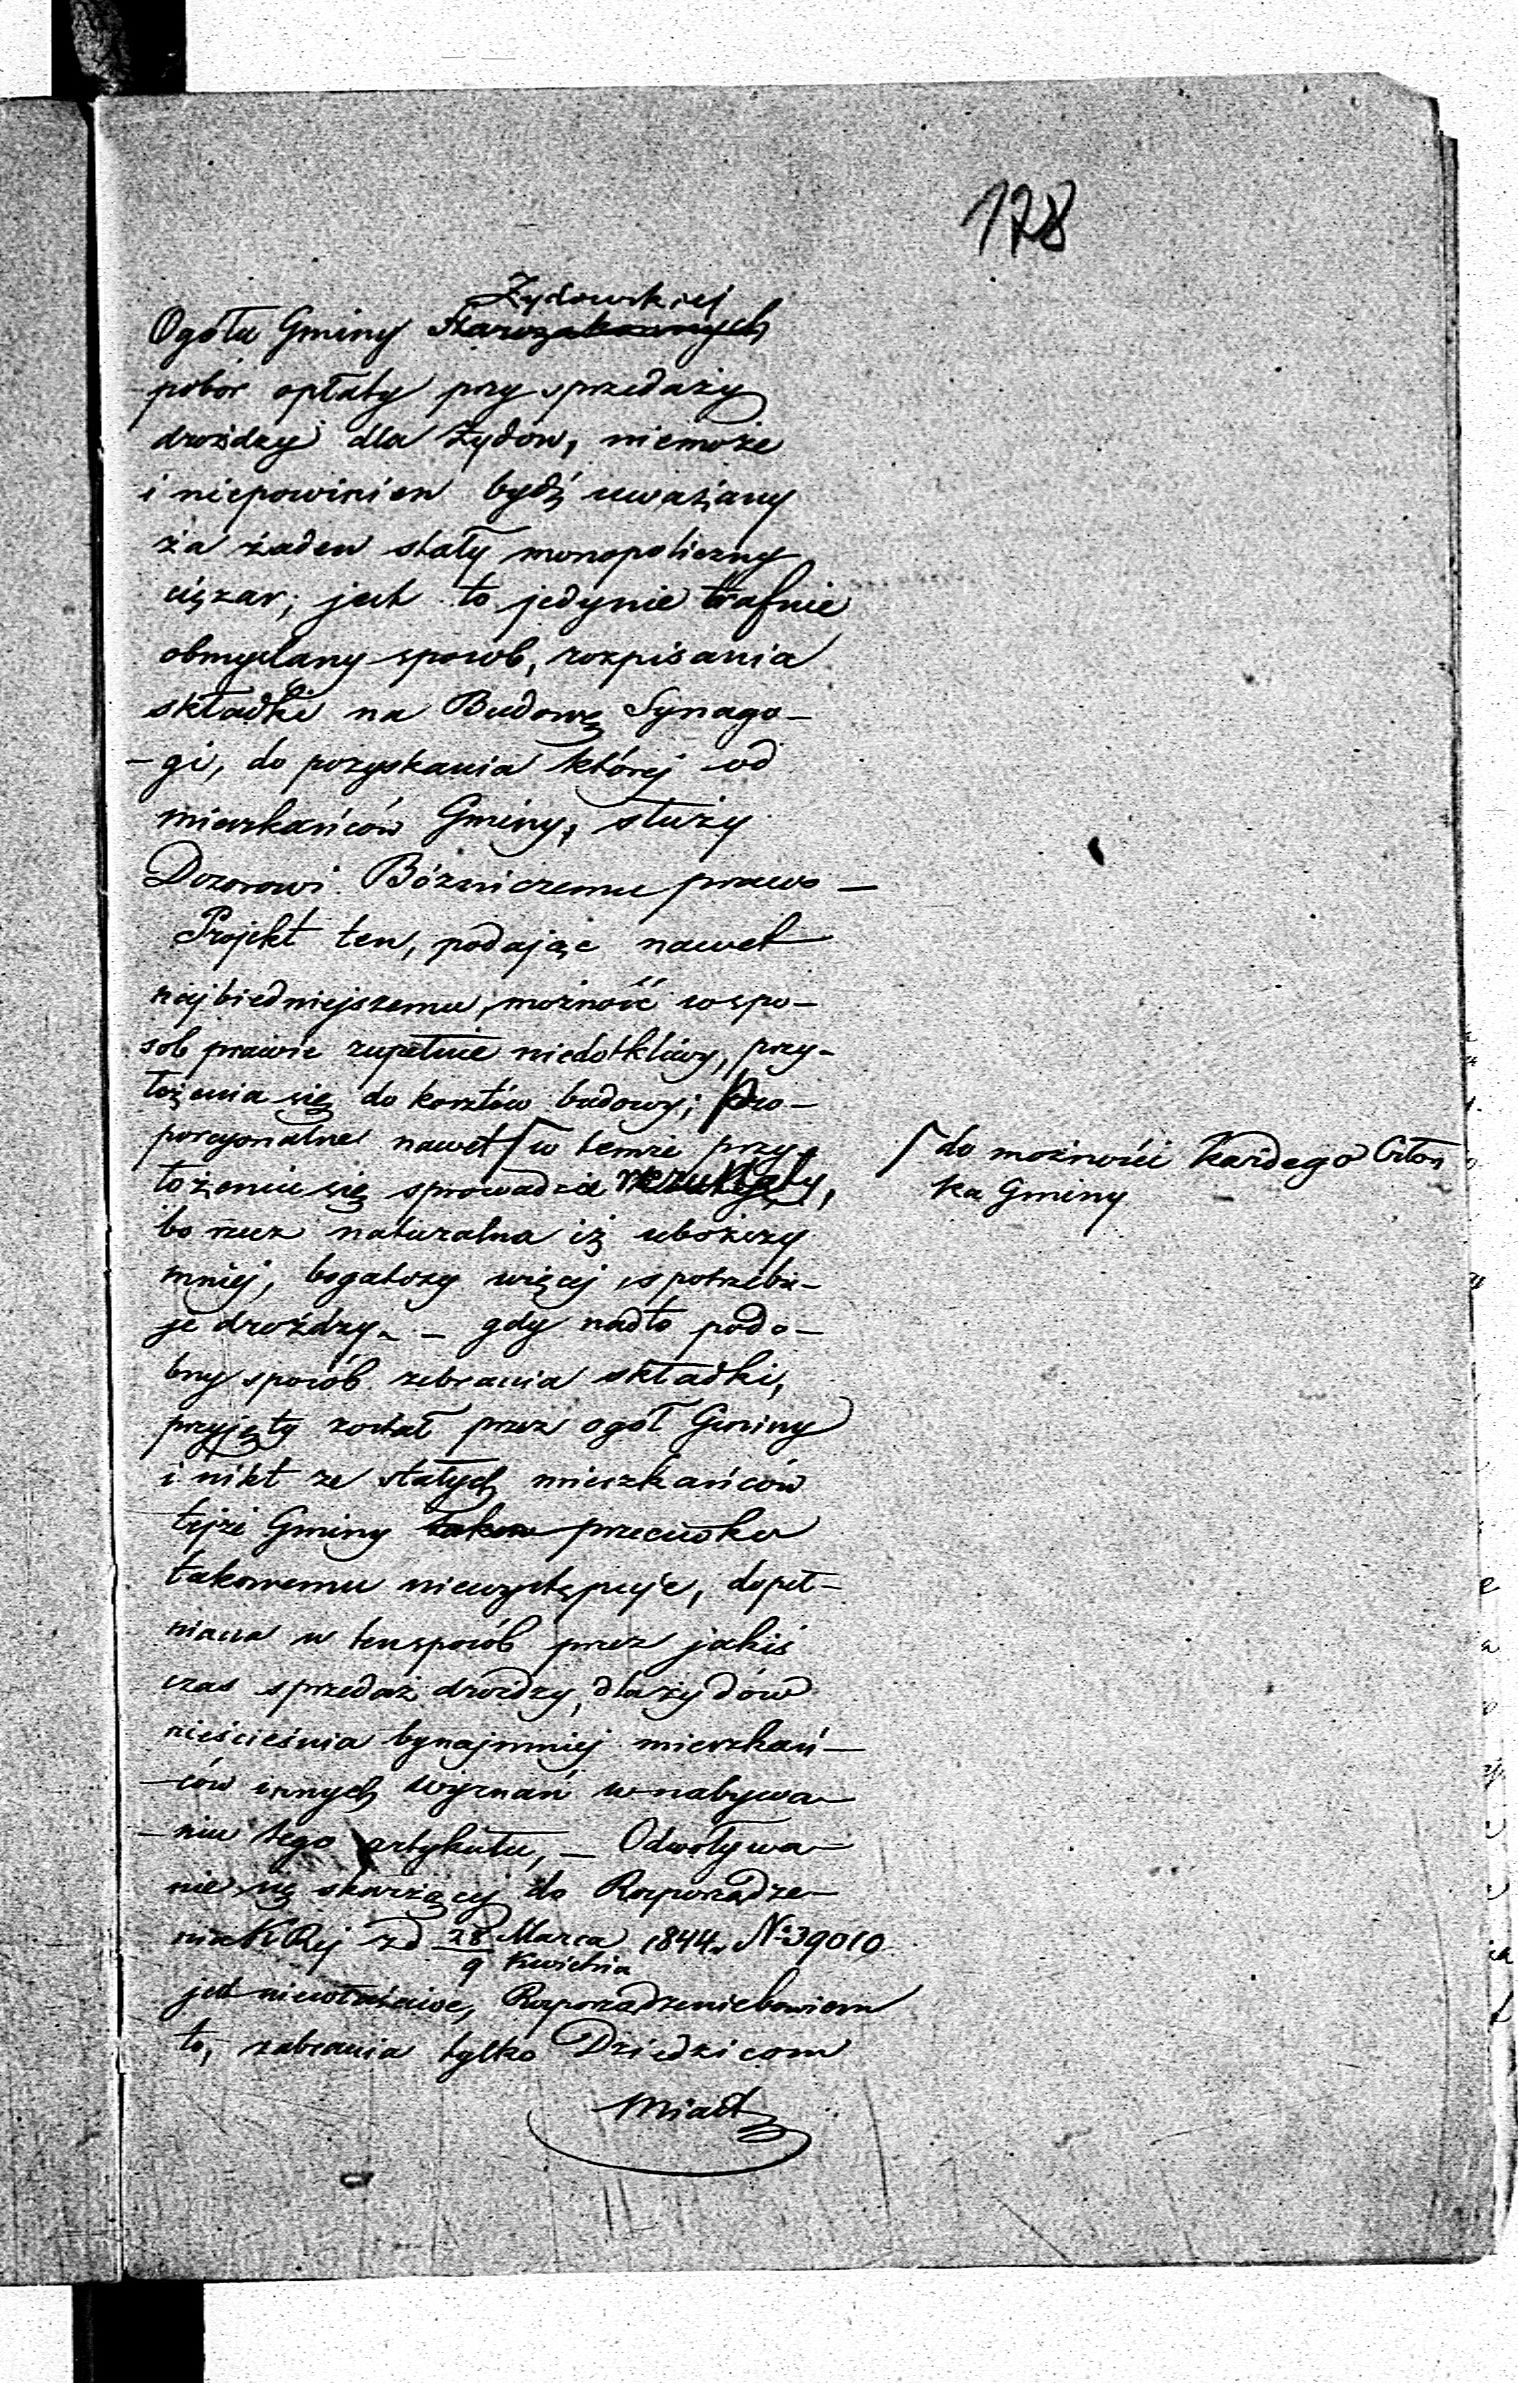 178
Żydowskiej
Ogółu Gminy Starozakonnych
pobór opłaty przy sprzedaży
drożdży dla Żydów, niemoże
i niepowinien bydź uważany
za żaden stały monopoliczny
ciężar; jest to jedynie trafnie
obmyślany sposób, rozpisania
składki na Budowę Synago-
-gi, do pozyskania której od
mieszkańców Gminy, służy
Dozorowi Bóżniczemu prawo –
Projekt ten, podając nawet
najbiedniejszemu, możność wspo-
sób prawie zupełnie niedotkliwy, przy-
łożenia się do kosztów budowy; pro-
porcyonalne nawet ⌈ w temże przy-
⌈ do możności każdego Człon
ka Gminy
łożeniu się sprowadza rezultaty,
bo rzecz naturalna iż uboższy
mniej, bogatszy więcej spotrzebu-
je drożdży. – gdy nadto podo-
bny sposób zebrania składki,
przyjęty został przez ogół Gminy
i nikt ze stałych mieszkańców
tejże Gminy przeciwko
takowemu niewystępuje, dopeł-
niana w tensposób przez jakiś
czas sprzedaż drożdży, dla żydów
nieścieśnia bynajmniej mieszkań-
-ców innych wyznań w nabywa-
-niu tego artykułu, – Odwoływa-
nie się skarżącej do Rozporządze-
nia KRej zd 28 Marca 1844 N: 39010
9 Kwietnia
jest niewłaściwe, Rozporządzenie bowiem
to, zabrania tylko Dziedzicom
Miast